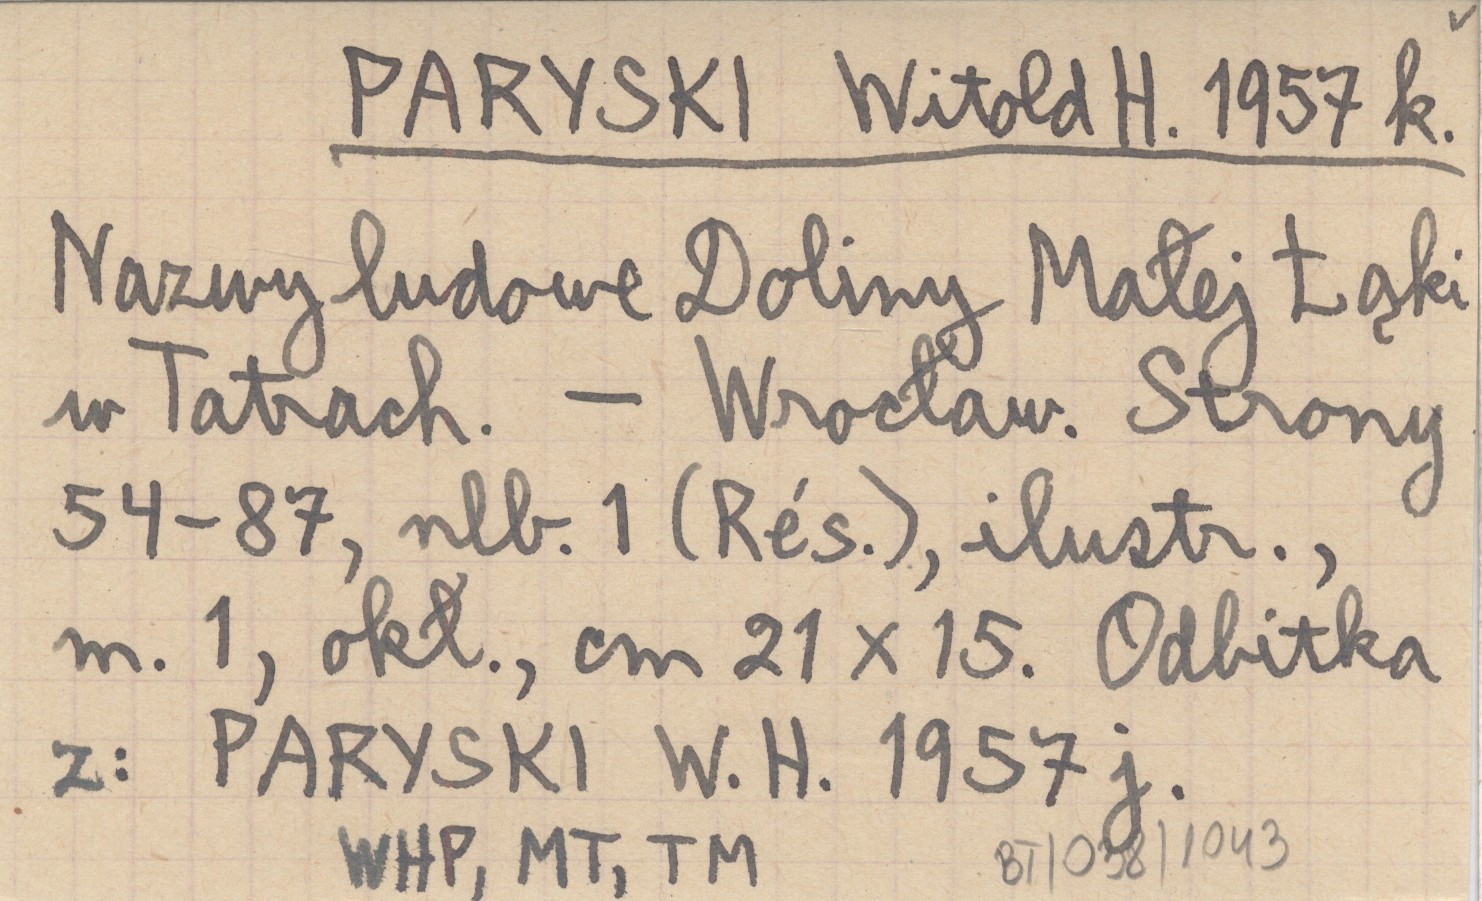 PARYSKI Witold H. 1957 k.
Nazwy ludowe Doliny Małej Łąki
w Tatrach. — Wrocław. Strony
54-87, nlb. 1 (Rés.), ilustr.,
m. 1, okł., cm 21 x 15. Odbitka
z: PARYSKI W. H. 1957 j.
WHP, MT, TM BT/038/1043